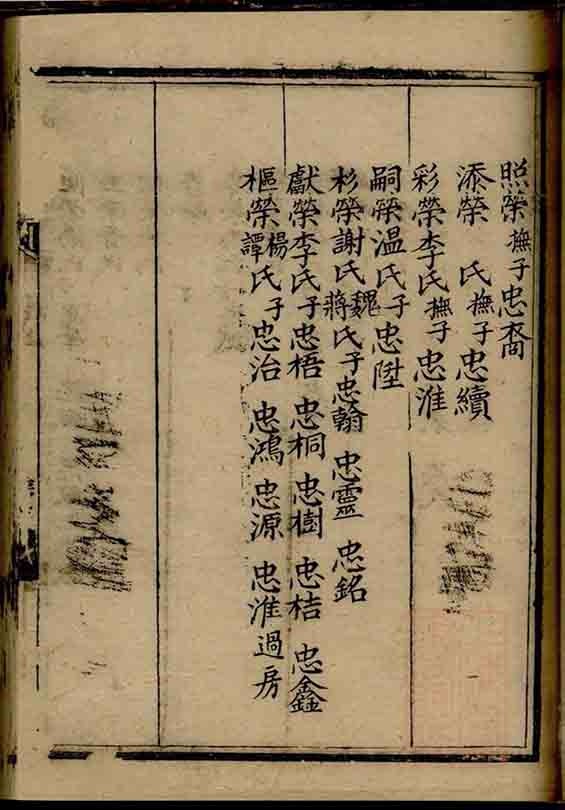 照榮撫子忠裔
添榮 氏撫子忠續
彩榮李氏撫子忠淮
嗣榮溫氏子忠陞
杉榮謝氏魏蔣氏子忠翰 忠靈 忠銘
獻榮李氏子忠梧 忠桐 忠樹 忠桔 忠鑫
樞榮楊譚氏子忠治 忠鴻 忠源 忠淮過房